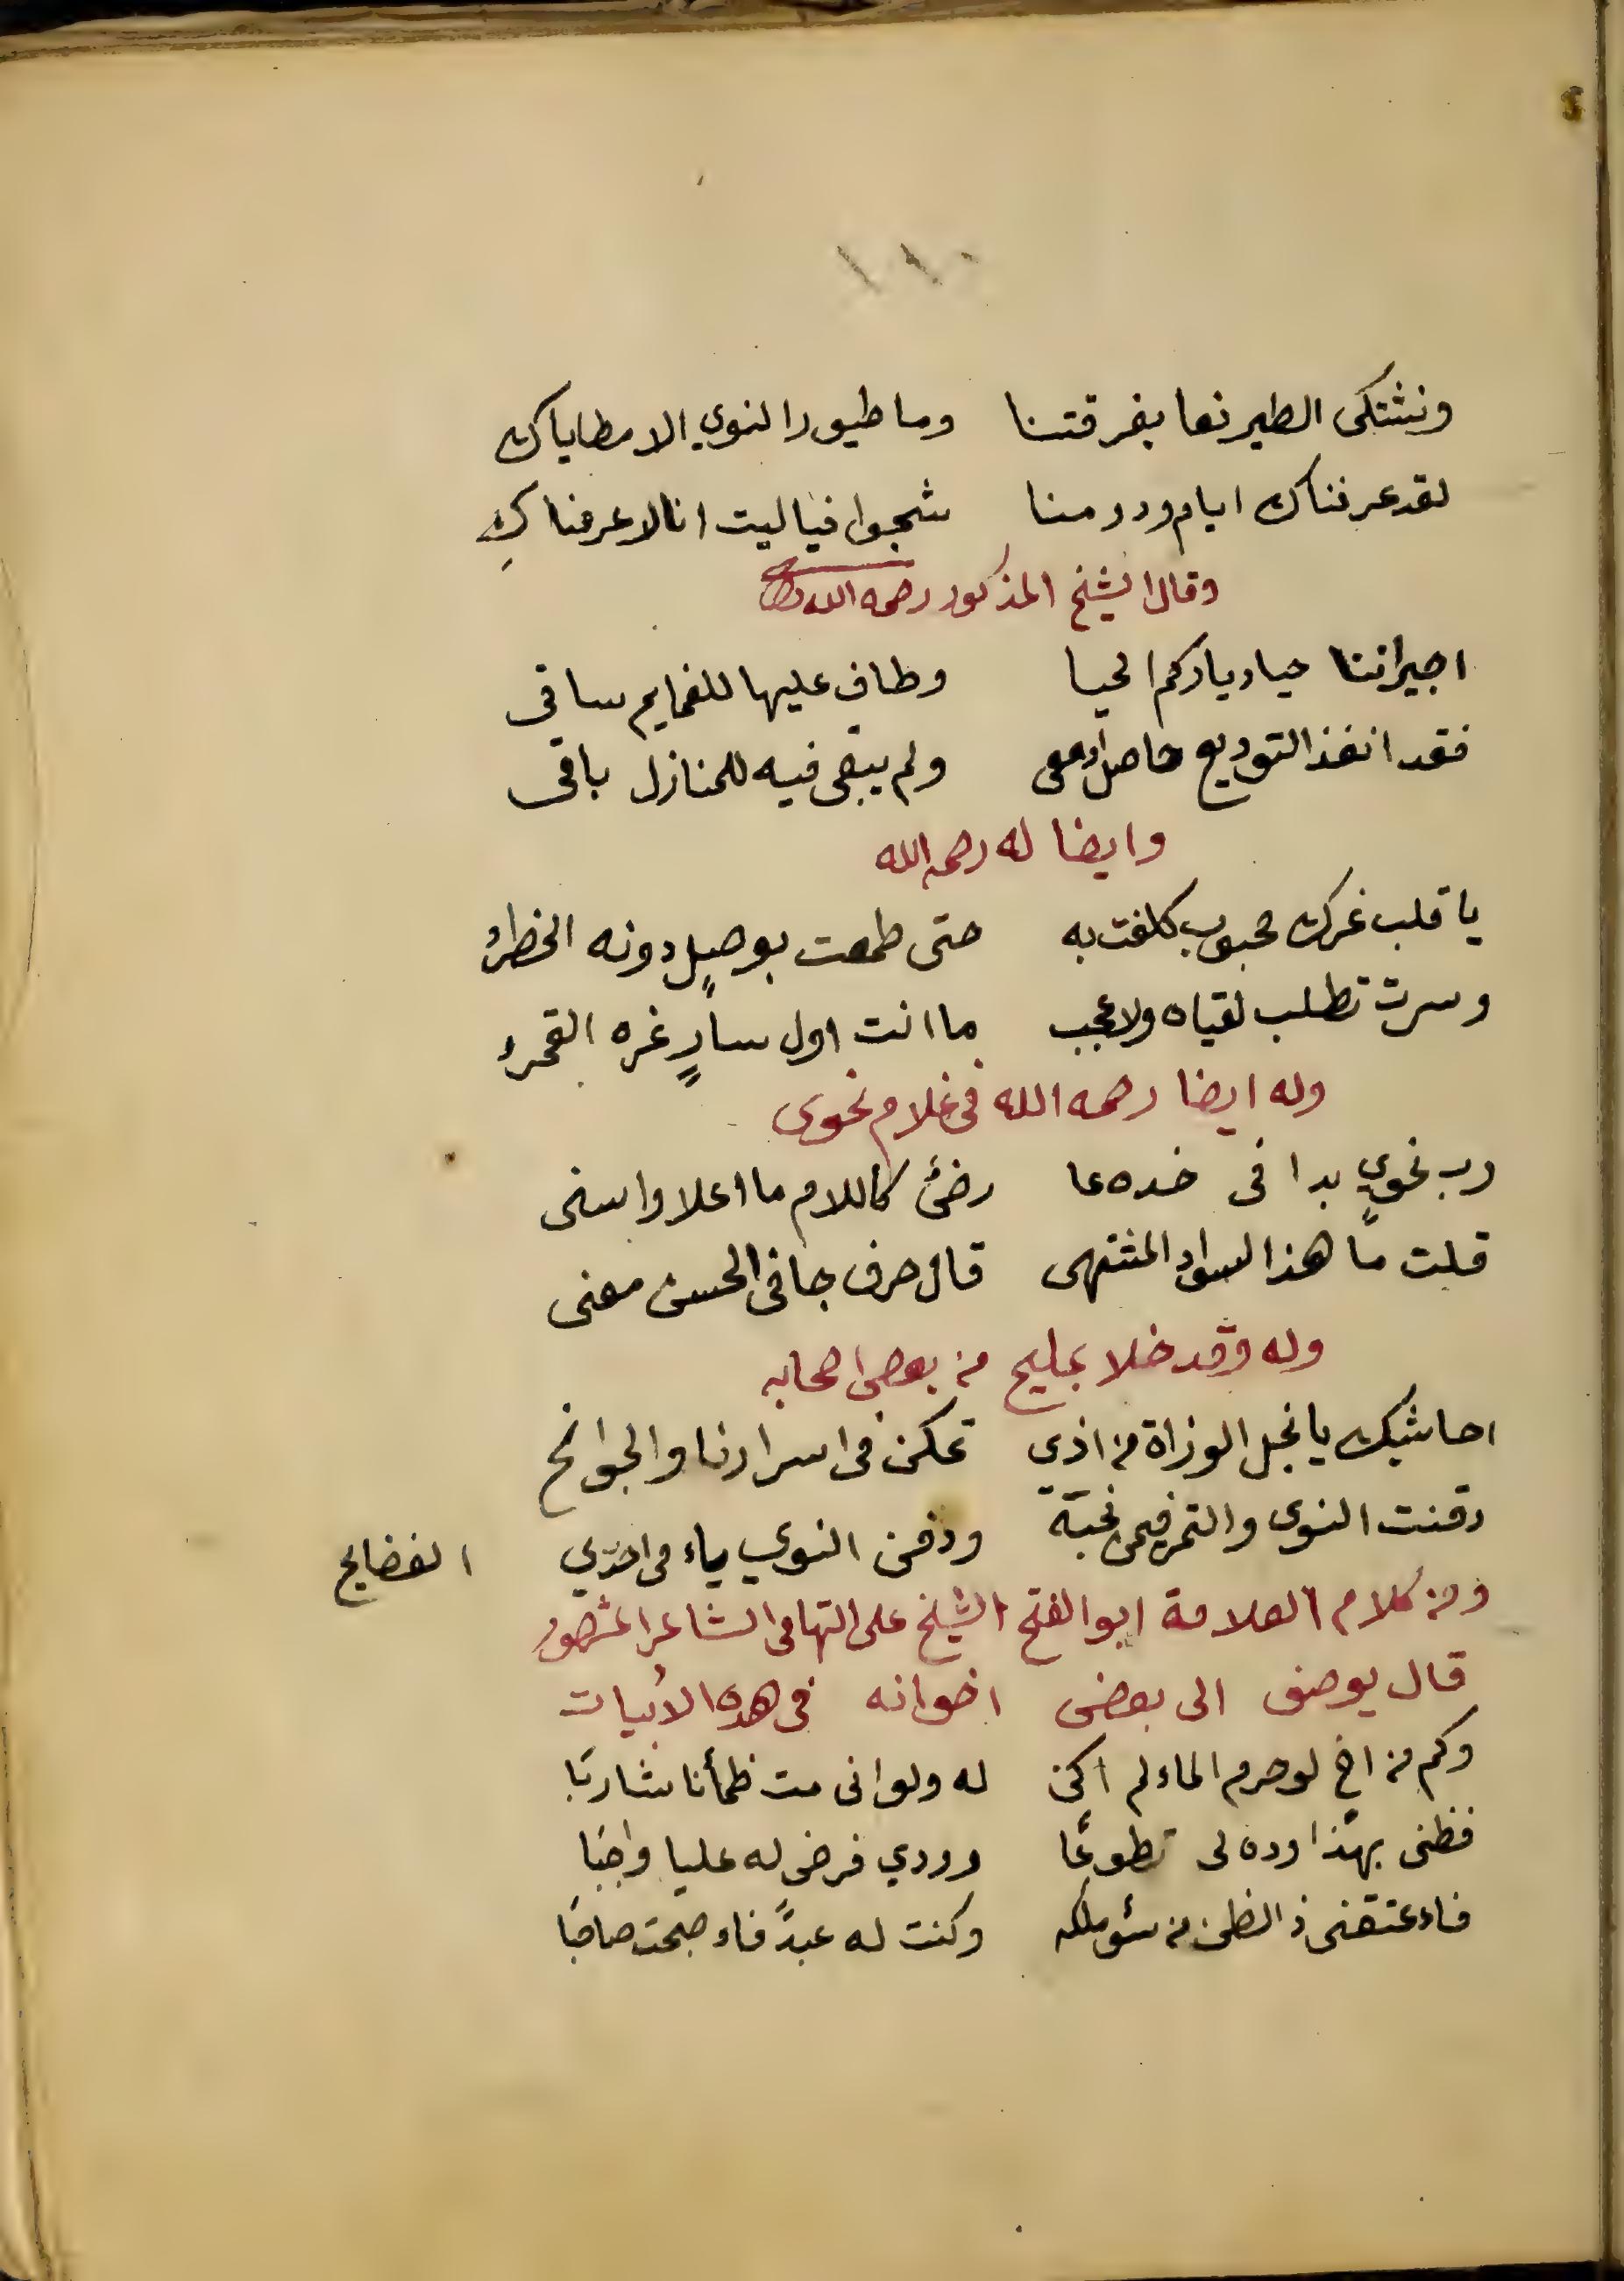 ١١٠
ونشتكى الطير نعا بفرقتنا وما طيور النوي الا مطاياك
لقد عرفناك ايام ودر منا شجوا فيا ليت انا لا عرفناكِ
وقال الشيخ المذكور رحمه الله
اجيراننا حيا دياركم الحيا وطاف عليها للغمايم ساقى
فقد انفذ التوديع حاصل ادمعى ولم يبقى فيه للمنازل باقى
وايضا له رحمه الله
يا قلب غرك محبوب كلفت به حتى طمعت بوصلٍ دونه الخطرُ
وسرت تطلب لقياه ولا عجب ما انت اول سارٍ غره القمرُ
وله ايضا رحمه الله فى غلام نحوى
رب نحويٍ بدا فى خده عا رضئ كاللام ما اعلا واسنى
قلت ما هذا السواد المنتهى قال حرف جا فى الحسن معنى
وله وقد خلا بمليح من بعض اصحابه
احاشيك يا نجل الوزاة من اذي تمكن فى اسرارنا والجوانح
دفنت النوى والتمر فيمن تحبة ودفن النوي ياء فى احدي الفضايح
ومن كلام العلامة ابو الفتح الشيخ على التهامى الشاعر المشهور
قال يوصف الى بعض اخوانه فى هذه الأبيات
وكم من اخٍ لو حرم الماء لم اكن له ولو انى مت ظمأنا شاربًا
فظنى بهذا وده لى تطوعًا وودي فرض له عليا واجبًا
فاءعتقنى ذ الظن من سئو ملكه وكنت له عبدً فاءصبحت صاحبًا